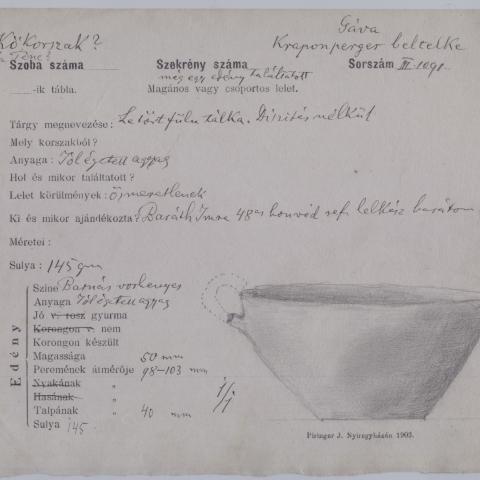 Kőkorszak?
Gáva
Kraponperger beltelke
Szoba száma
Szekrény száma
Sorszám III-1091
még egy edény találtatott
-ik tábla.
Magános vagy csoportos lelet.
Tárgy megnevezése: Letört fülü tálka. Diszités nélkül
Mely korszakból?
Anyaga: Jól égetett agyag
Hol és mikor találtatott?
Lelet körülmények: Ösmeretlenek
Ki és mikor ajándékozta: Baráth Imre 48as honvéd ref. lelkész barátom
Méretei:
Sulya: 145 gm
Edény
Szine Barnás vörhenyes
Anyaga Jól égetett agyag
Jó v. rosz gyurma
Korongon v. nem
Korongon készült
Magassága 50 mm
Peremének átmérője 98-103 mm
Nyakának "
Hasának "
1/1
Talpának " 40 mm
Sulya 145
Piringer J. Nyiregyházán 1903.